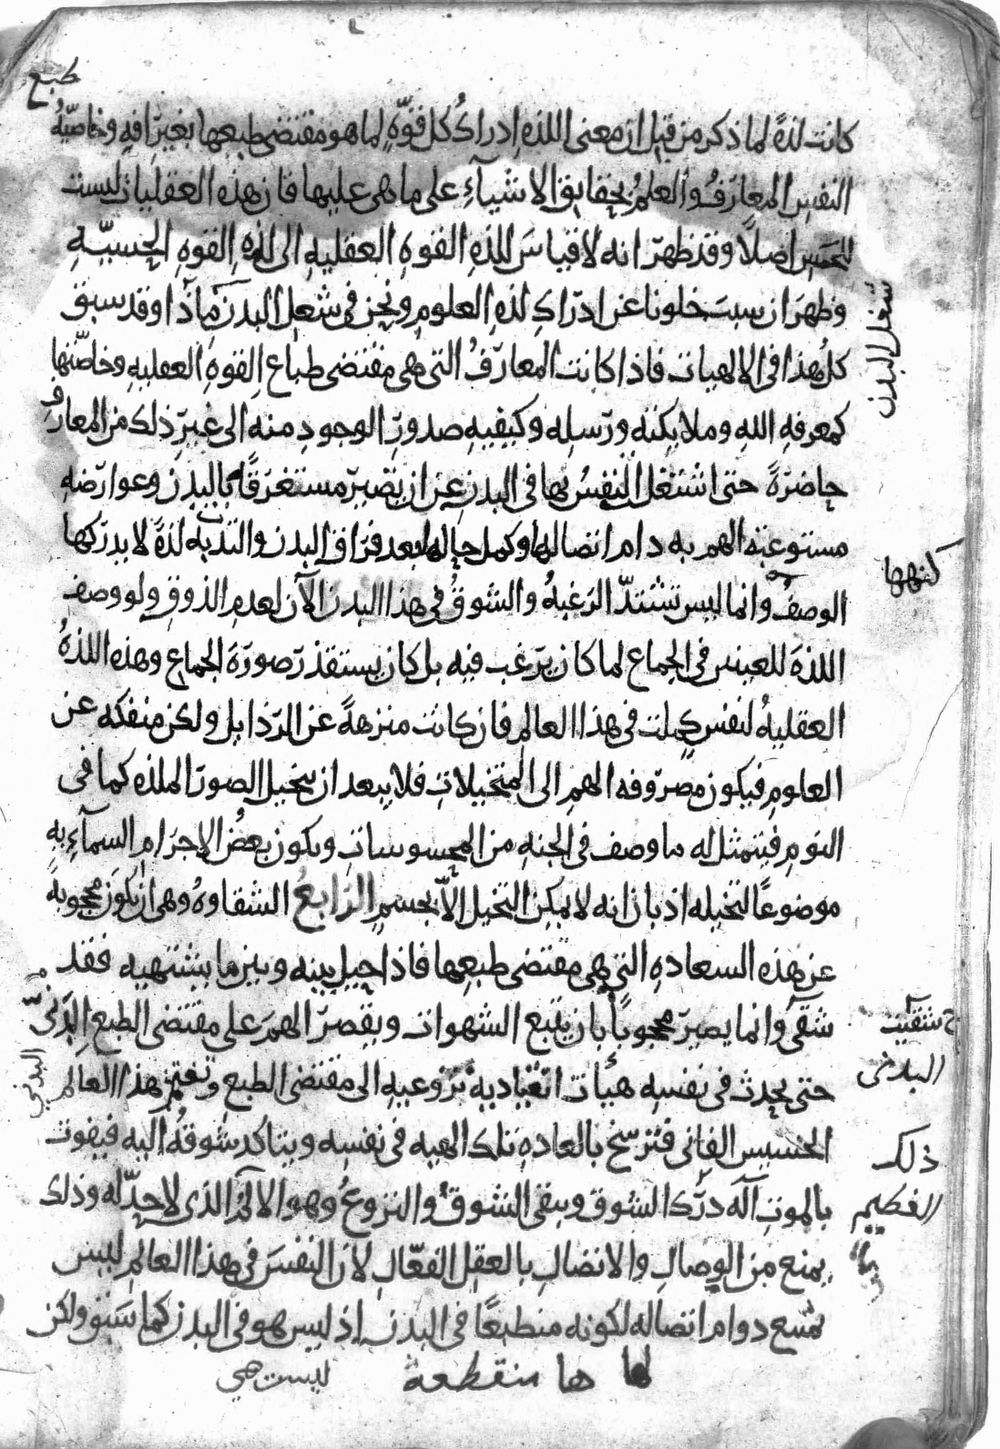 طبع
كانت لذة لما ذكر من قبل ان معنى اللذه ادراك كل قوّه لما هو مقتضى طبعها بغير افه وخاصّيّة
النفس المعارف والعلم بحقايق الاشيآء على ما هى عليها فان هذه العقليات ليست
للحس اصلاً وقد ظهر انه لا قياس للذه القوه العقليه الى لذه القوه الحسيّه
وظهر ان سبب خلونا عن ادراك لذه العلوم ونحن فى شغل البدن ماذا وقد سبق
شغل البدن
كل هذا فى الالهيات فاذا كانت المعارف التى هى مقتضى طباع القوه العقليه وخاصّتها
كمعرفه الله وملايكته ورسله وكيفيه صدور الوجود منه الى غير ذلك من المعارف
حاضرةً حتى اشتغل النفس بها فى البدن عن ان يصير مستغرقًا بالبدن وعوارضه
مستوعبَه الهم به دام اتصالها وكمل حالها بعد فراق البدن والتذّ به لذةً لا يدركها
كنهها
الوصف وانما ليس تشتدّ الرغبة والشوق فى هذا البدن الآن لعدم الذوق ولو وصف
اللذة للعنين فى الجماع لما كان يرغب فيه بل كان يستقذر صورة الجماع وهذه اللذة
العقلية لنفس كملت فى هذا العالم فان كانت منزهةً عن الرذايل ولكن منفكه عن
العلوم فيكون مصروفه الهم الى المتخيلات فلا يبعد ان تتخيل الصور الملذه كما فى
النوم فيتمثل له ما وصف فى الجنه من المحسوسات ويكون بعض الاجرام السمآءيه
موضوعًا لتخيله اذ بان انه لا يمكن التخيل الاّ بجسم الرابع الشقاوه وهى ان يكون محجوبة
عن هذه السعاده التى هى مقتضى طبعها فاذا حيل بينه وبين ما يشتهيه فقد
شقى وانما يصير محجوباً بان يتبع الشهوات ويقصر الهم على مقتضى الطبع
شقيت
البدنى
حتى يحدث فى نفسه هيأت انقياديه نزوعيه الى مقتضى الطبع هذا العالم
البدنى
الخسيس الفانى فترسخ بالعاده تلك الهيه فى نفسه ويتاكد شوقه اليه فيفوت
ذلك
بالموت آله درك الشوق ويبقى الشوق والنزوع وهو الالم الذى لا حدّ له وذلك
العظيم
يمنع من الوصال والاتصال بالعقل الفعّال لان النفس فى هذا العالم ليس
يمتنع دوام اتصاله لكونه منطبعًا فى البدن اذ ليس هو فى البدن كما سبق ولكن
ها منقطعة ليست هى